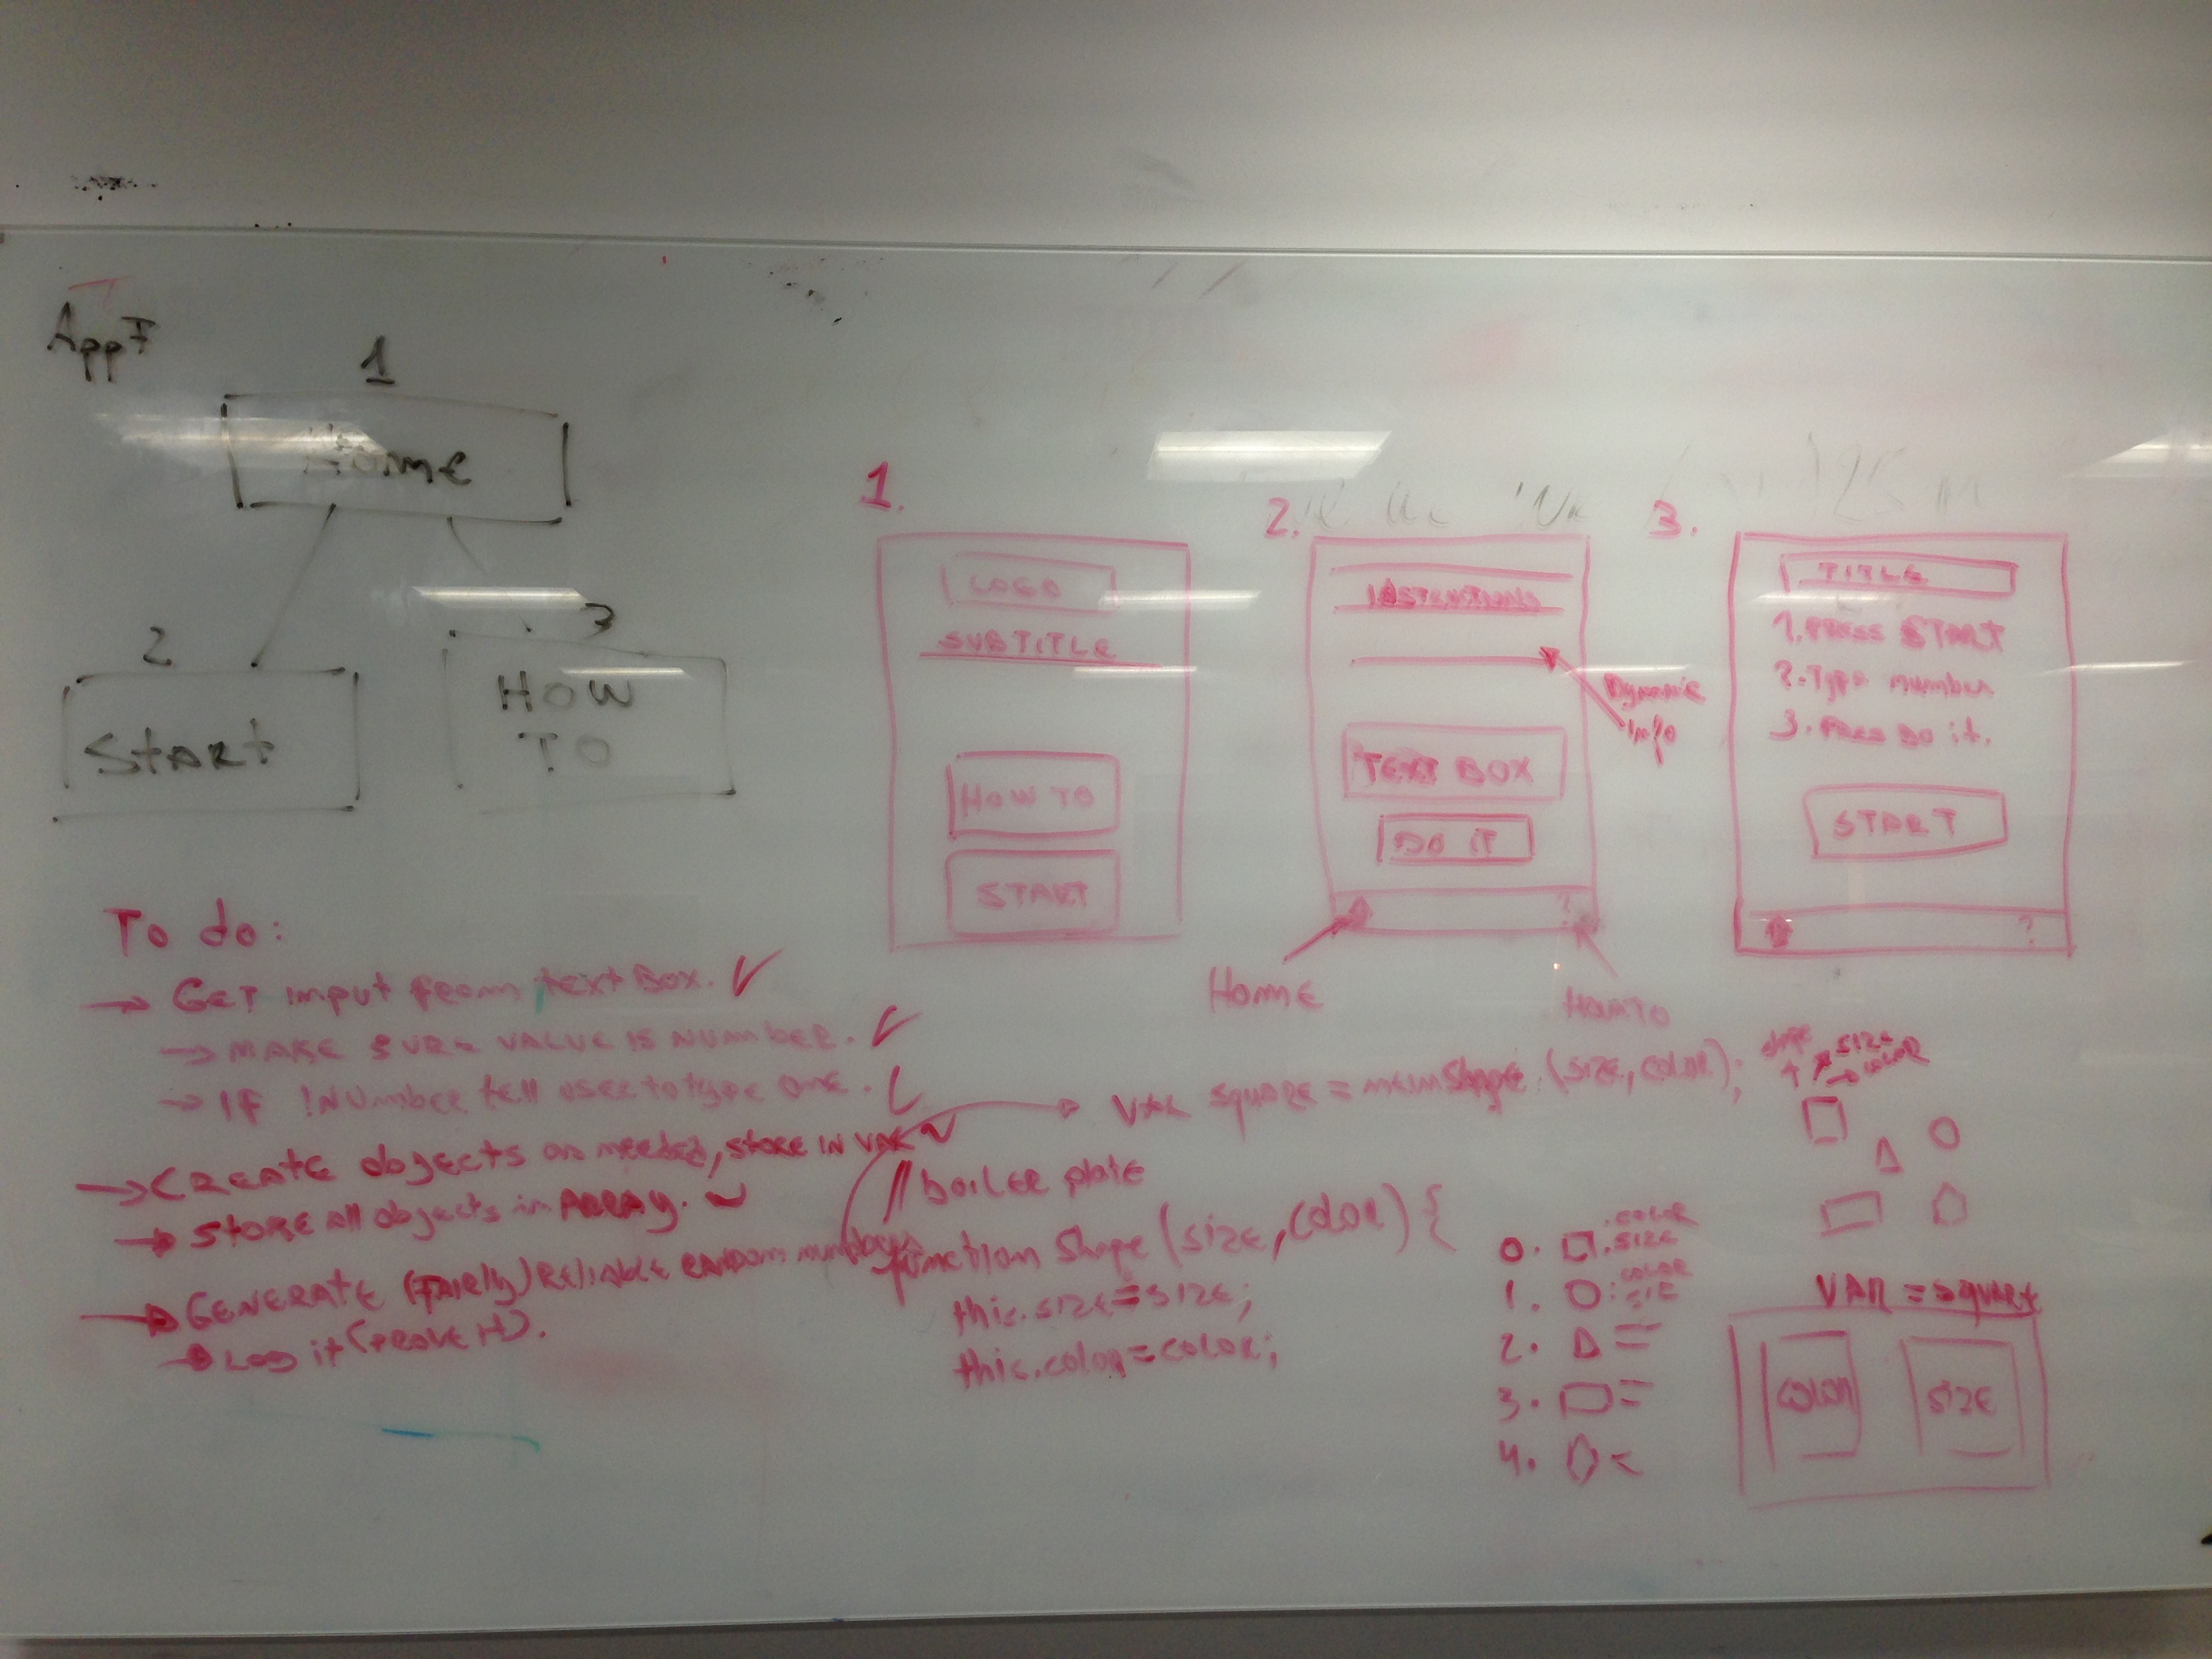 App7
1
Home
2
3
Start
HOW
TO
1.
LOGO
SUBTITLE
HOW TO
START
2.
Dynamic
Info
TEXT BOX
DO IT
?
Home
HowTo
3.
TITLE
1. PRESS START
2. Type number
3. PRESS DO it.
START
?
To do:
→ GET input from text Box. ✓
→ MAKE SURE VALUE IS NUMBER. ✓
→ IF !NUMBER tell user to type one. ✓
→ CREATE objects as needed, store in VAR ✓
→ STORE all objects in ARRAY. ✓
→ GENERATE (FAIRLY) RELIABLE RANDOM numbers
→ LOG it (PROVE it).
VAR SQUARE = new Shape (SIZE, COLOR);
// boiler plate
function Shape (SIZE, COLOR) {
this.size = size;
this.color = color;
shape
SIZE
COLOR
0. .COLOR
.SIZE
1. COLOR
SIZE
2.
3.
4.
VAR = square
COLOR
SIZE